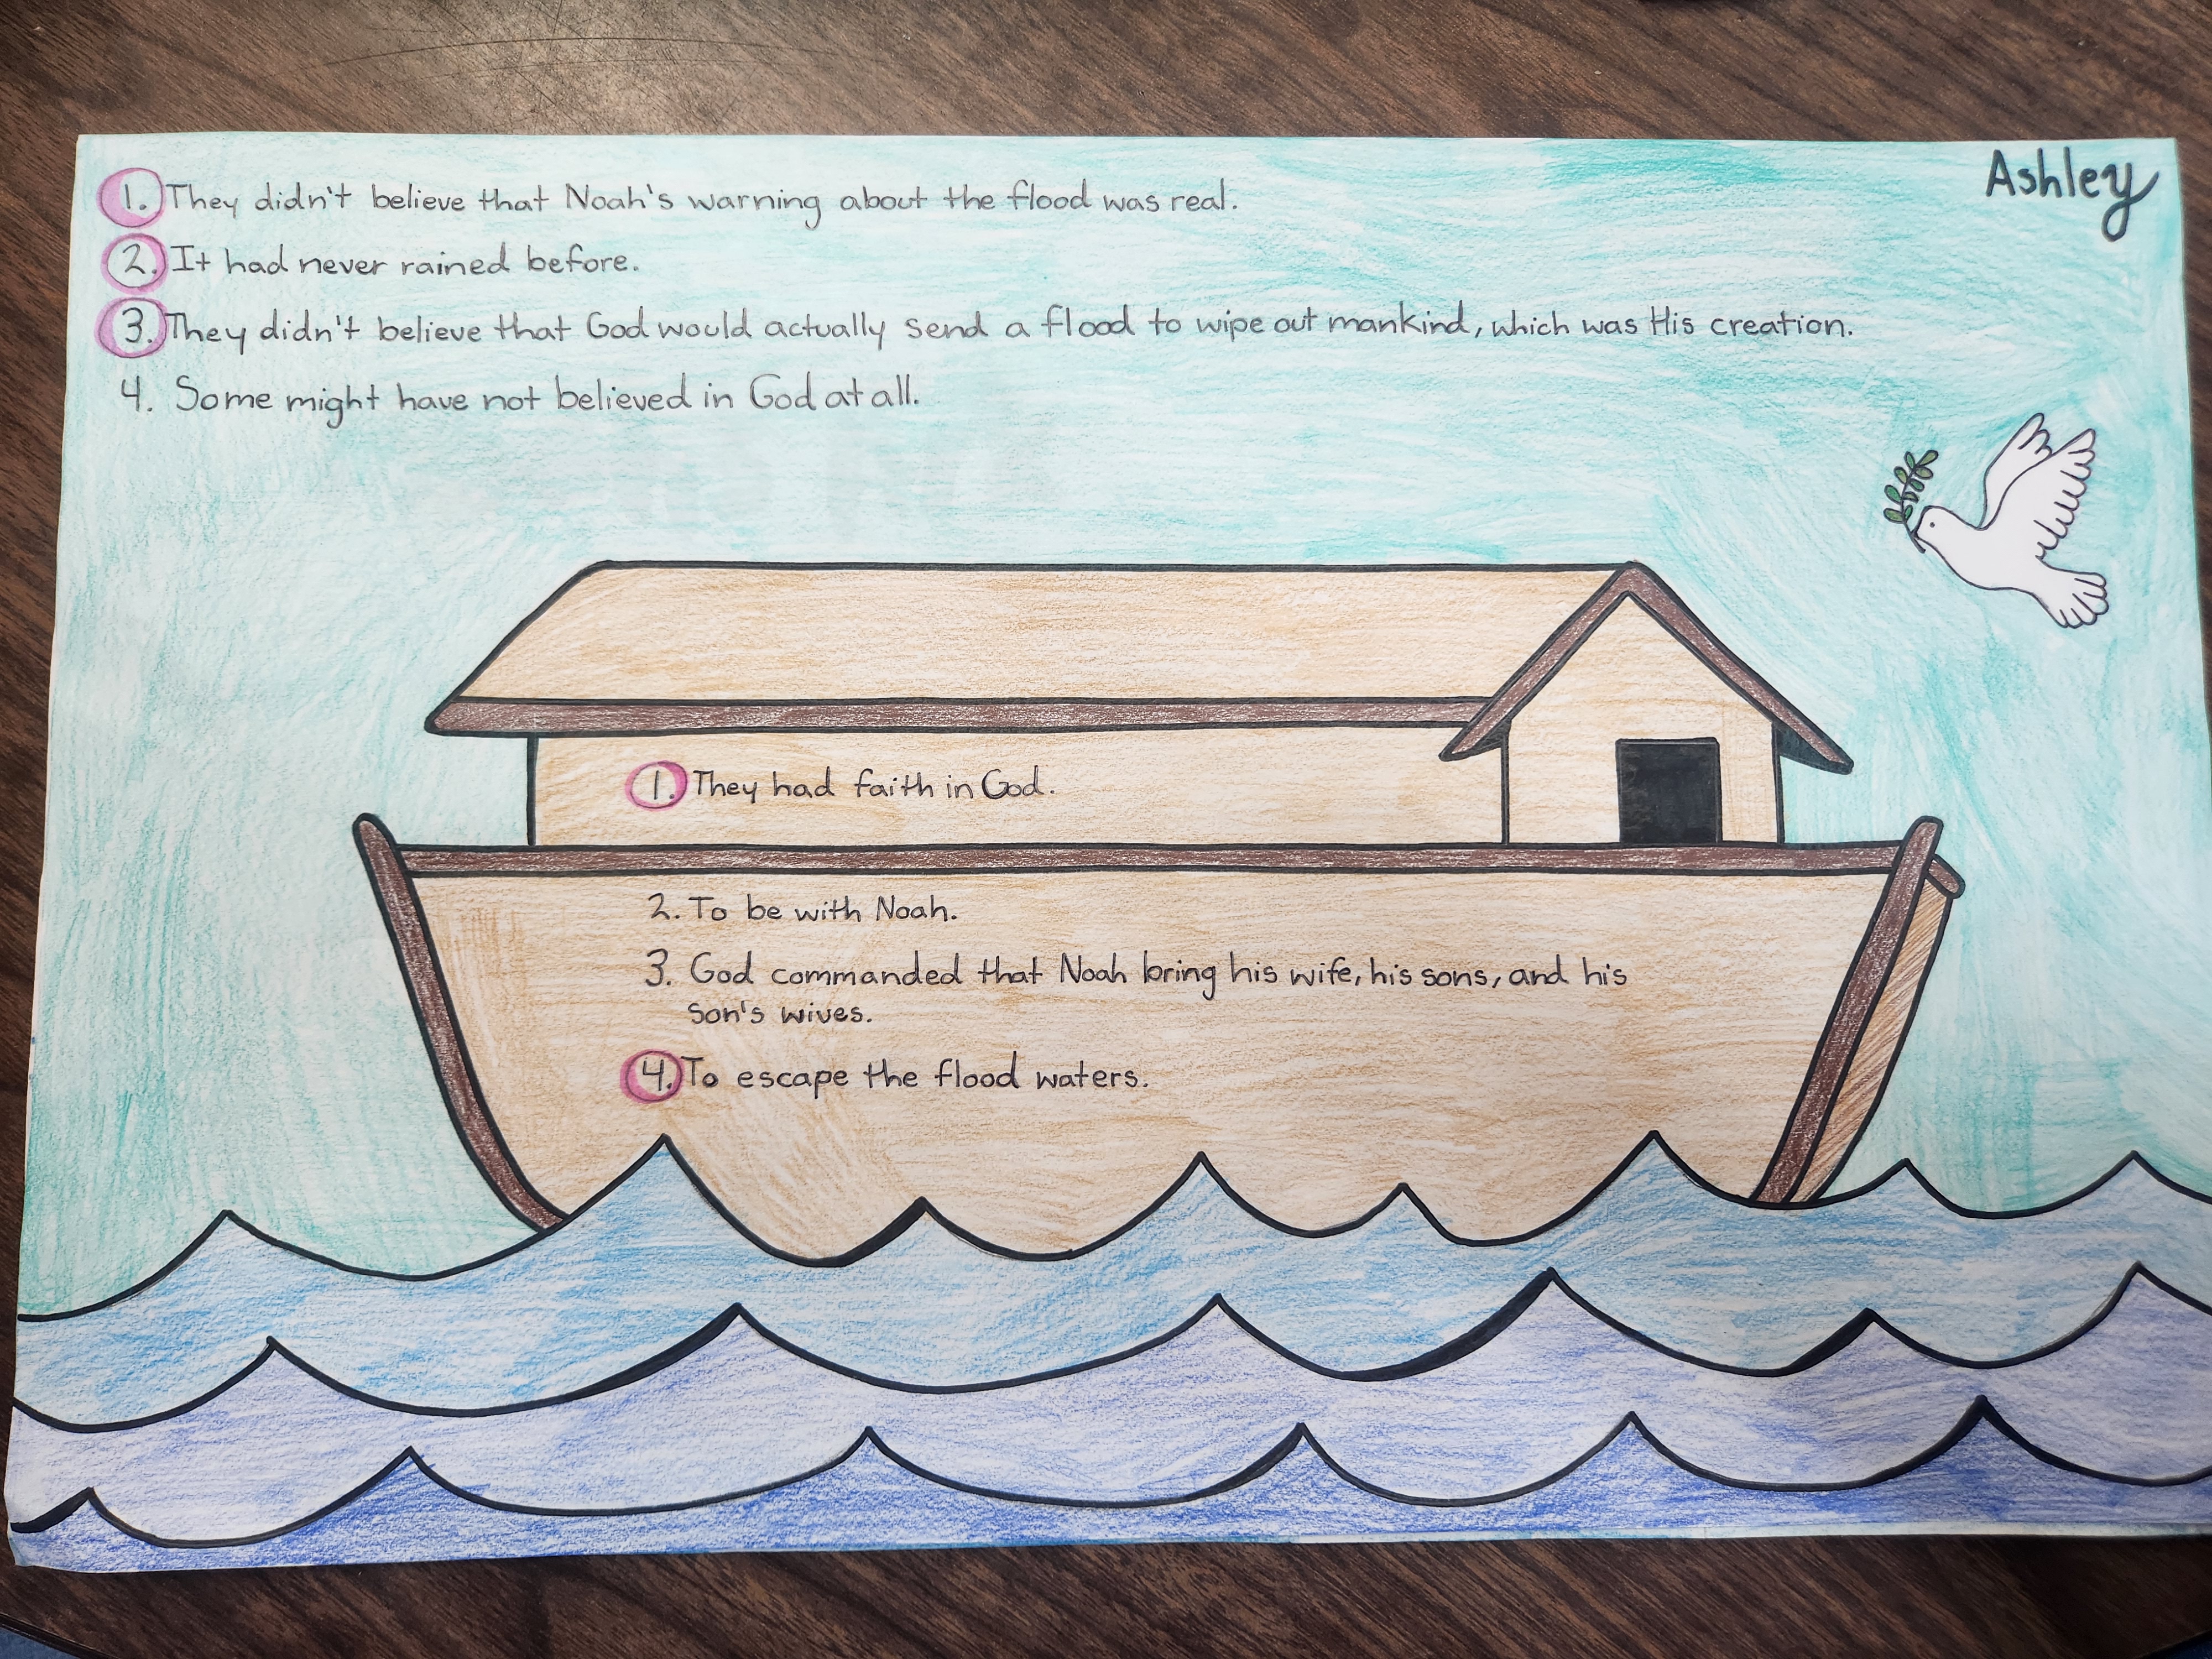 Ashley
1. They didn't believe that Noah's warning about the flood was real.
2. It had never rained before.
3. They didn't believe that God would actually send a flood to wipe out mankind, which was His creation.
4. Some might have not believed in God at all.
1. They had faith in God.
2. To be with Noah.
3. God commanded that Noah bring his wife, his sons, and his
son's wives.
4. To escape the flood waters.